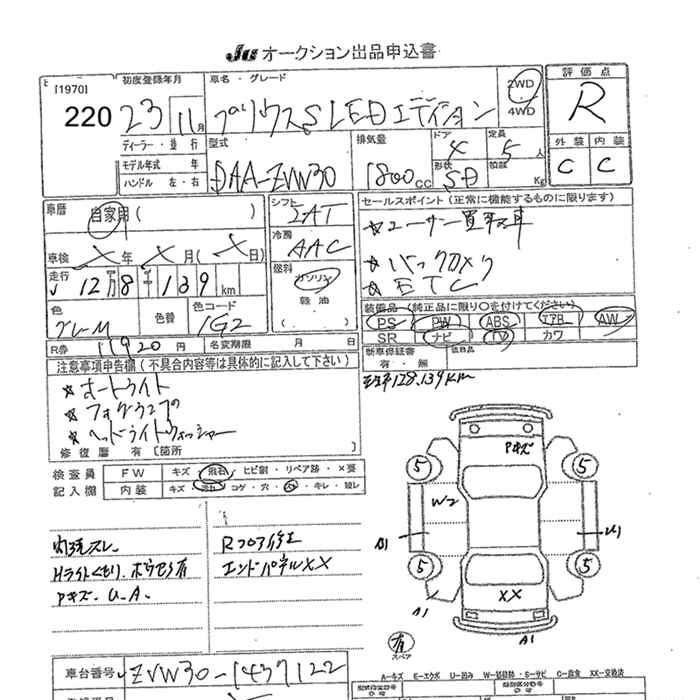 Ju オークション出品申込書
[1970]
220
初度登録年月
23 11月
車名・グレード
プリウスS LEDエディション
2WD
4WD
評価点
R
外装 内装
C C
ディーラー・並行
モデル年式 年
ハンドル 左・右
型式
DAA-ZVW30
排気量
1800cc
ドア
4
定員
5人
形状
SD
積載
Kg
車歴
自家用( )
車検 X年 X月(X日)
走行
12万8千139km
色
グレーM
色替
色コード
1G2
シフト
IAT
冷房
AAC
燃料
ガソリン
軽油
( )
セールスポイント(正常に機能するものに限ります)
☆ユーザー買取車
☆バックカメラ
☆ETC
装備品(純正品に限り○を付けてください)
PS PW ABS エアB AW
SR ナビ TV カワ
R券 11920円
名変期限 月 日
新車保証書
有・無
後日品
走行128.139km
注意事項申告欄(不具合内容等は具体的に記入して下さい)
☆オートライト
☆フォグランプ
☆ヘッドライトウォッシャー
修復歴 有〔箇所 〕
検査員
記入欄
FW キズ・飛石・ヒビ割・リペア跡・X要
内装 キズ・汚れ・コゲ・穴・スレ・キレ・破レ
内張スレ
Hライトくもり.ホウセキ有
Pキズ.U.A.
Rフロア修正
エンドパネルXX
Pキズ
5 5
W2
A1 U1
5 5
XX
A1 A1
有
スペア
車台番号
ZVW30-1437122
A―キズ E―エクボ U―凹み S―サビ C―腐食 XX―交換済